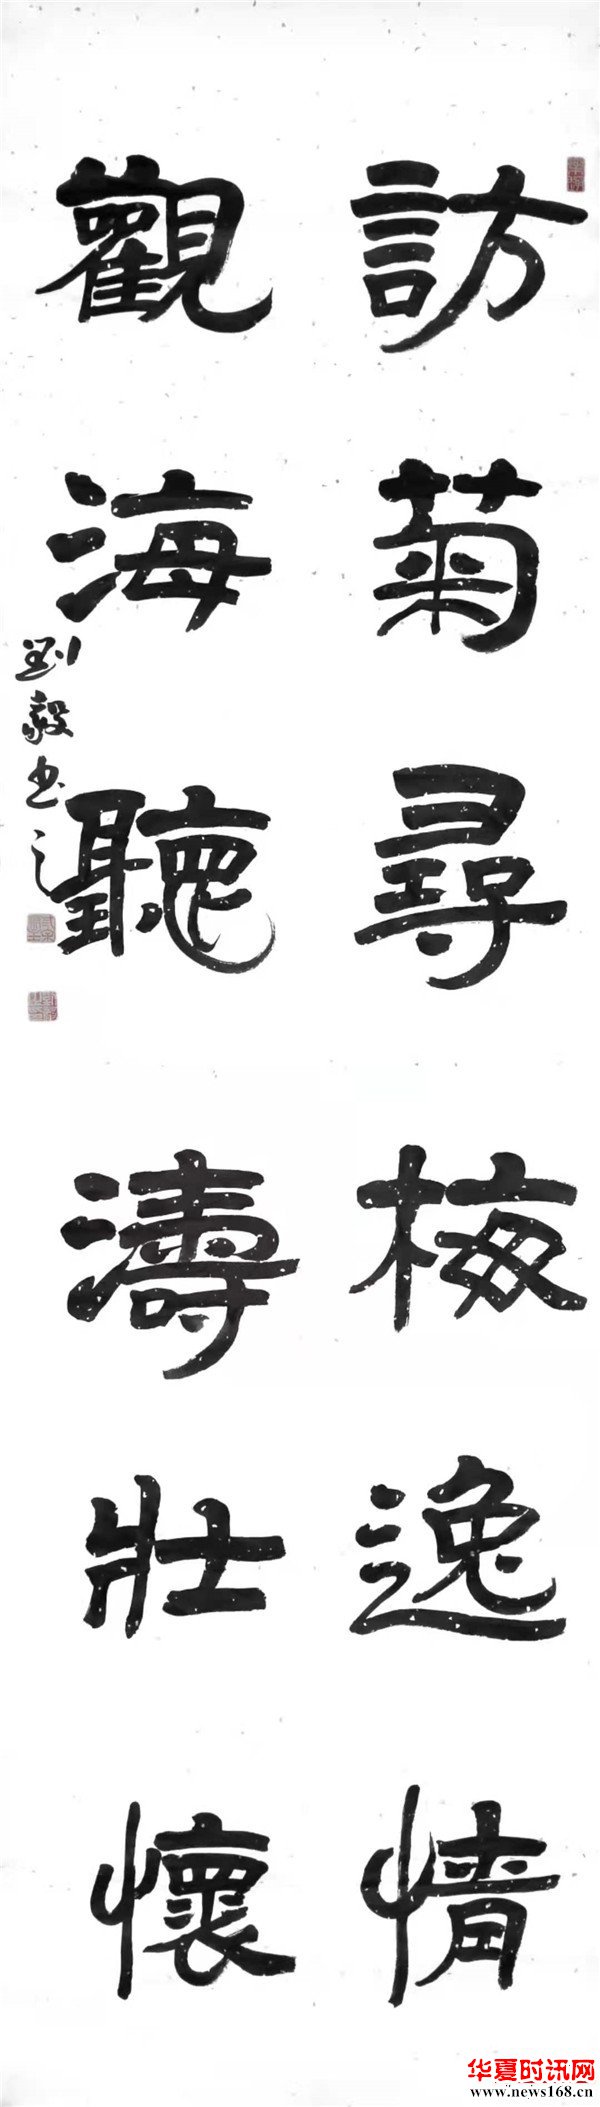 訪菊尋梅逸情
觀海聽濤壯懷
劉毅书之
华夏时讯网
www.news168.cn